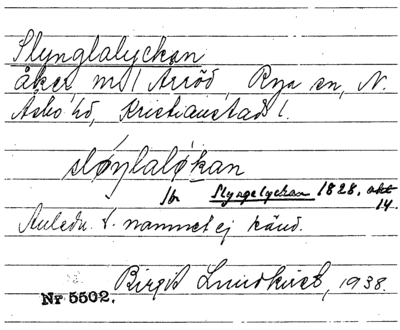 Slynglalyckan
åker m/ Arröd, Rya sn, N.
Åsbo hd, Kristianstads l.
sløŋlaløkan
lb Slyngelyckan 1828, akt
14.
Anledn. t. namnet ej känd.
Birgit Lundkvist, 1938.
Nr 5502.